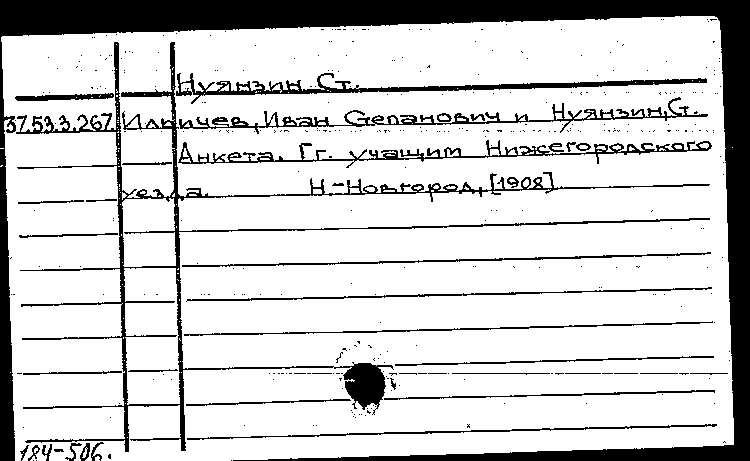 Нуянзин Ст.
37.53.3.267. Ильичев, Иван Степанович и Нуянзин, С.
Анкета. Гг. учащим Нижегородского
уезда. Н.-Новгород, [1908]
184-506.